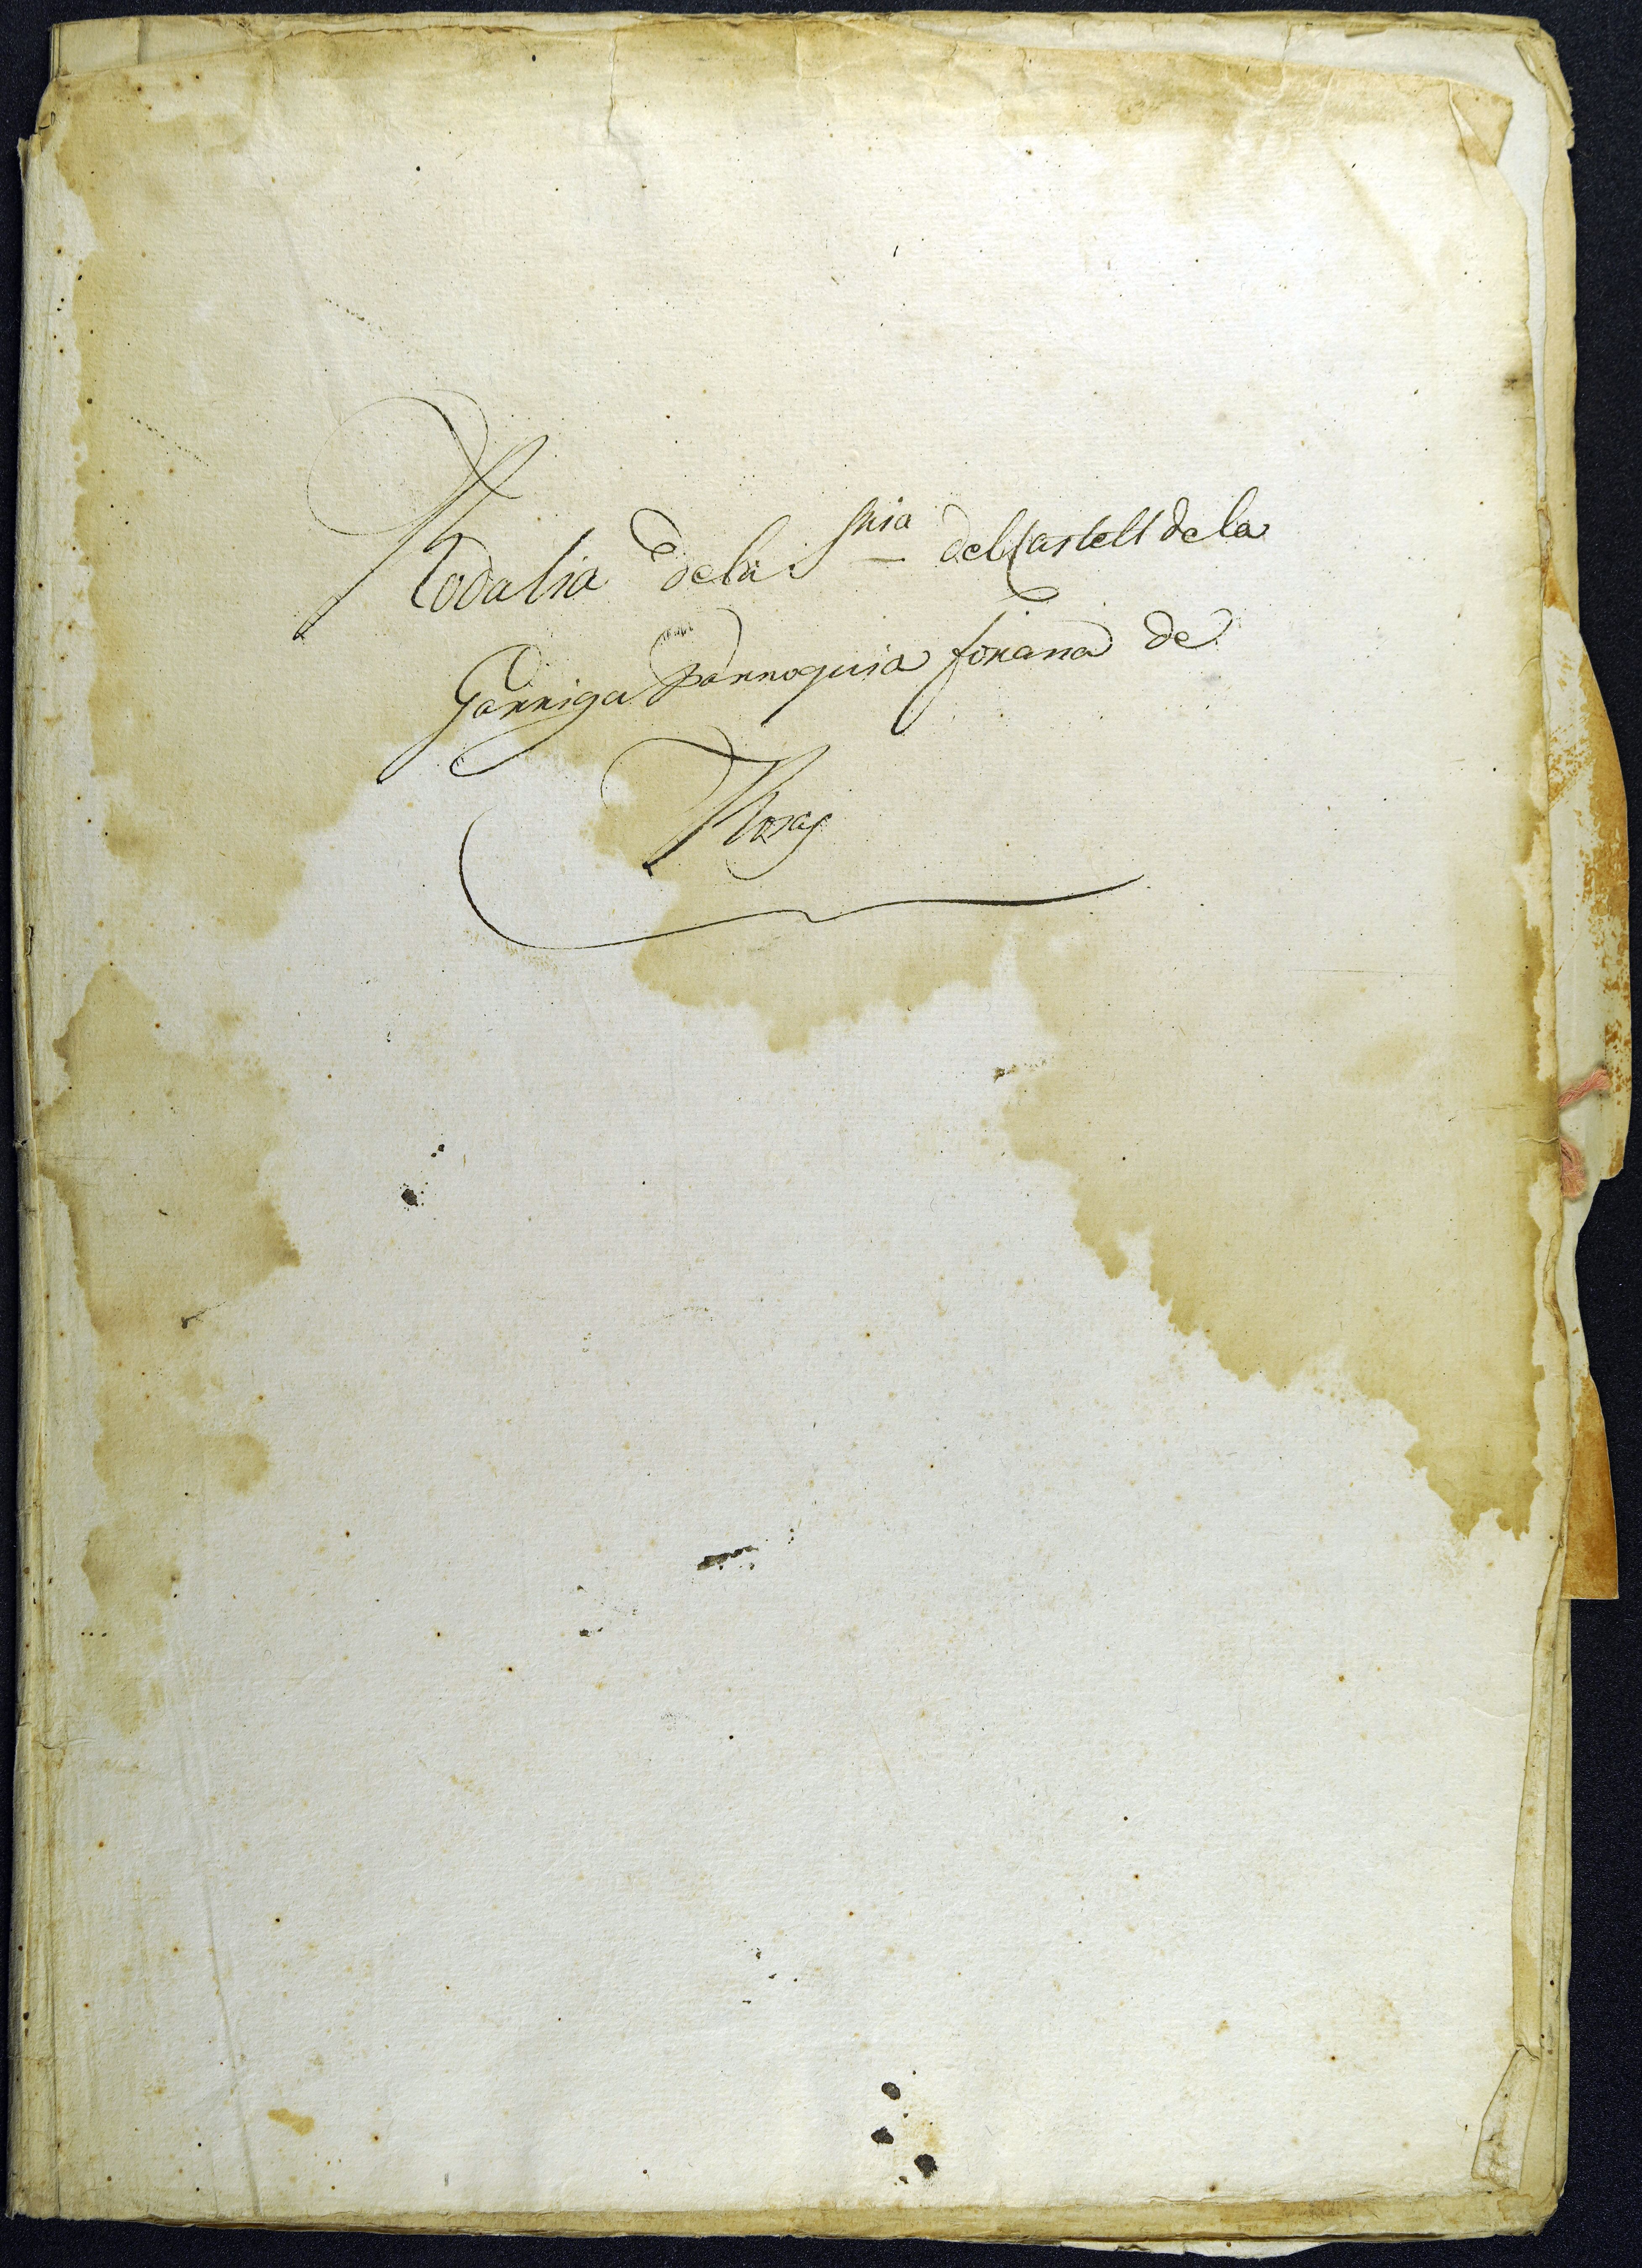 Rodalia dela Sria del Castell dela
Garriga Parroquia forana de
Rosas